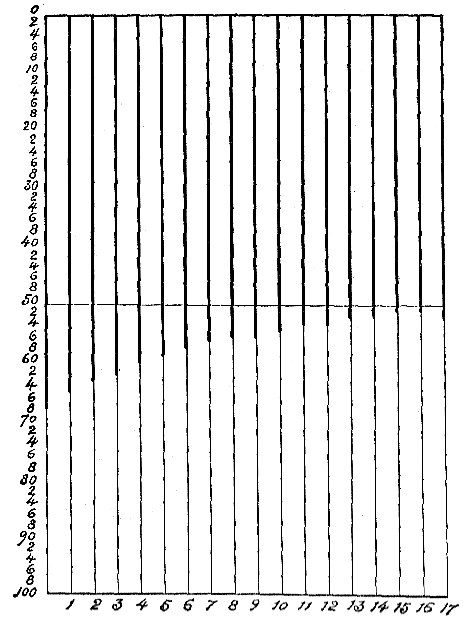 0
2
4
6
8
10
2
4
6
8
20
2
4
6
8
30
2
4
6
8
40
2
4
6
8
50
2
4
6
8
60
2
4
6
8
70
2
4
6
8
80
2
4
6
8
90
2
4
6
8
100
1 2 3 4 5 6 7 8 9 10 11 12 13 14 15 16 17